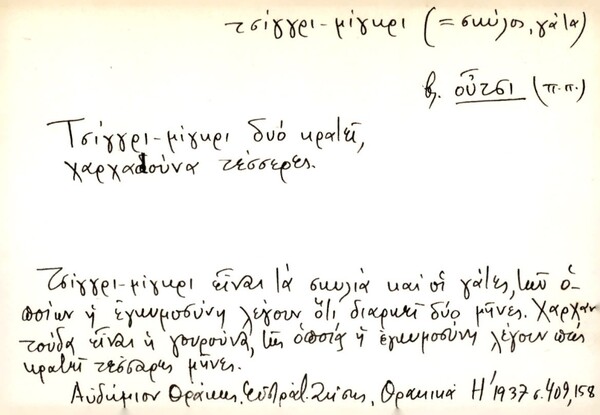 τσίγγρι-μίγκρι (= σκύλος, γάτα)
βλ. οὖτσι (π.π.)
Τσίγγρι-μίγκρι δυό κρατεῖ,
χαρχαδούνα τέσσερες.
Τσίγγρι-μίγκρι εἶναι τά σκυλιά καί οἱ γάτες, τῶν ὁ-
ποίων ἡ ἐγκυμοσύνη λέγουν ὅτι διαρκεῖ δύο μῆνες. Χαρχαν
τούδα εἶναι ἡ γουρούνα, τῆς ὁποίας ἡ ἐγκυμοσύνη λέγουν πώς
κρατεῖ τέσσαρες μῆνες.
Αὐδήμιον Θράκης, Εὐστράτ. Ζήσης, Θρακικά Η' 1937 σ. 409, 158